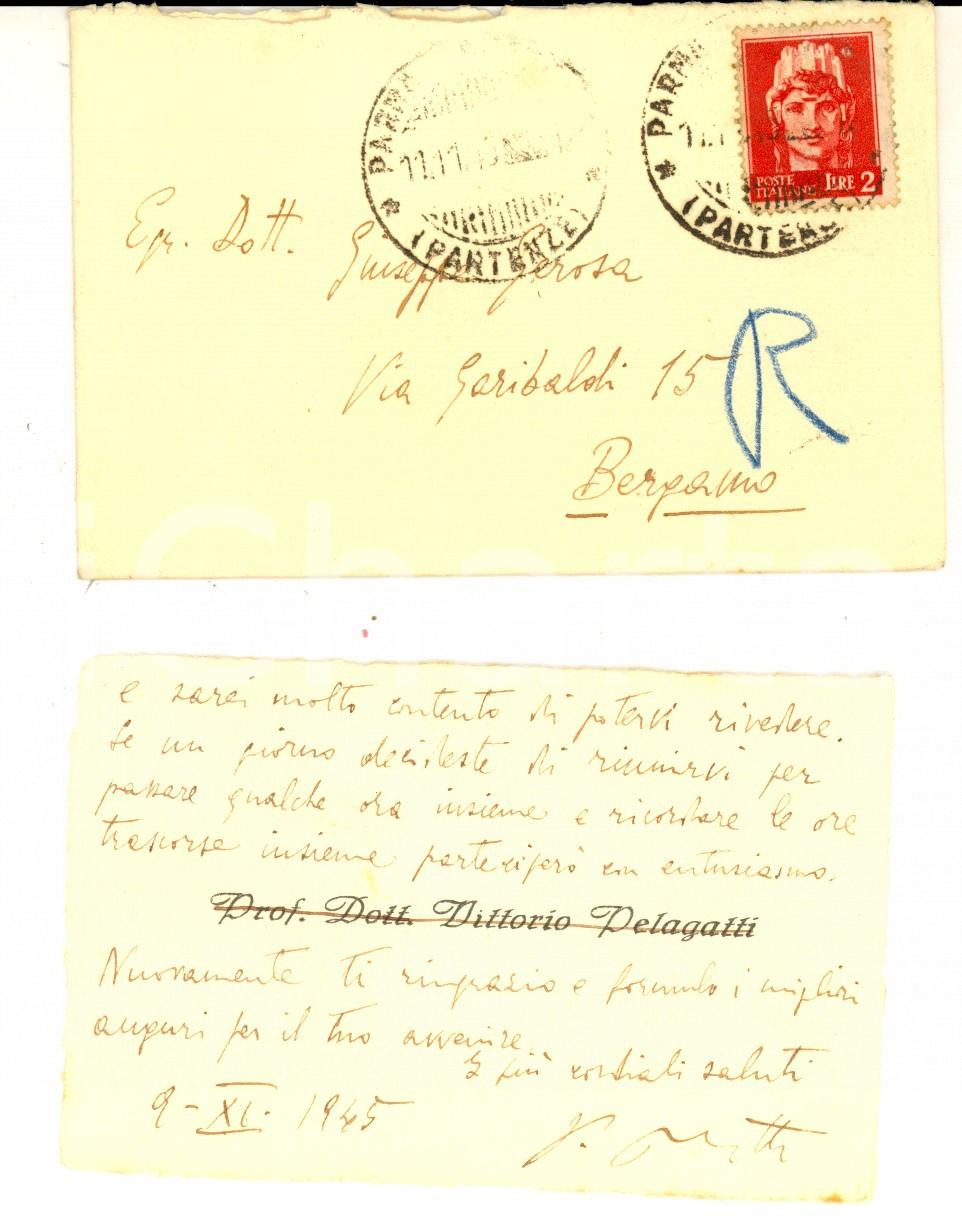 PARMA
11.11.45
(PARTENZE)
PARMA
11.1
(PARTENZE
POSTE
ITALIANE LIRE 2
Egr. Dott. Giuseppe Gerosa
Via Garibaldi 15
R
Bergamo
e sarei molto contento di potervi rivedere.
Se un giorno decideste di riunirvi per
passare qualche ora insieme e ricordare le ore
trascorse insieme parteciperò con entusiasmo.
Prof. Dott. Vittorio Pelagatti
Nuovamente ti ringrazio e formulo i migliori
auguri per il tuo avvenire.
I più cordiali saluti
9-XI-1945
V.